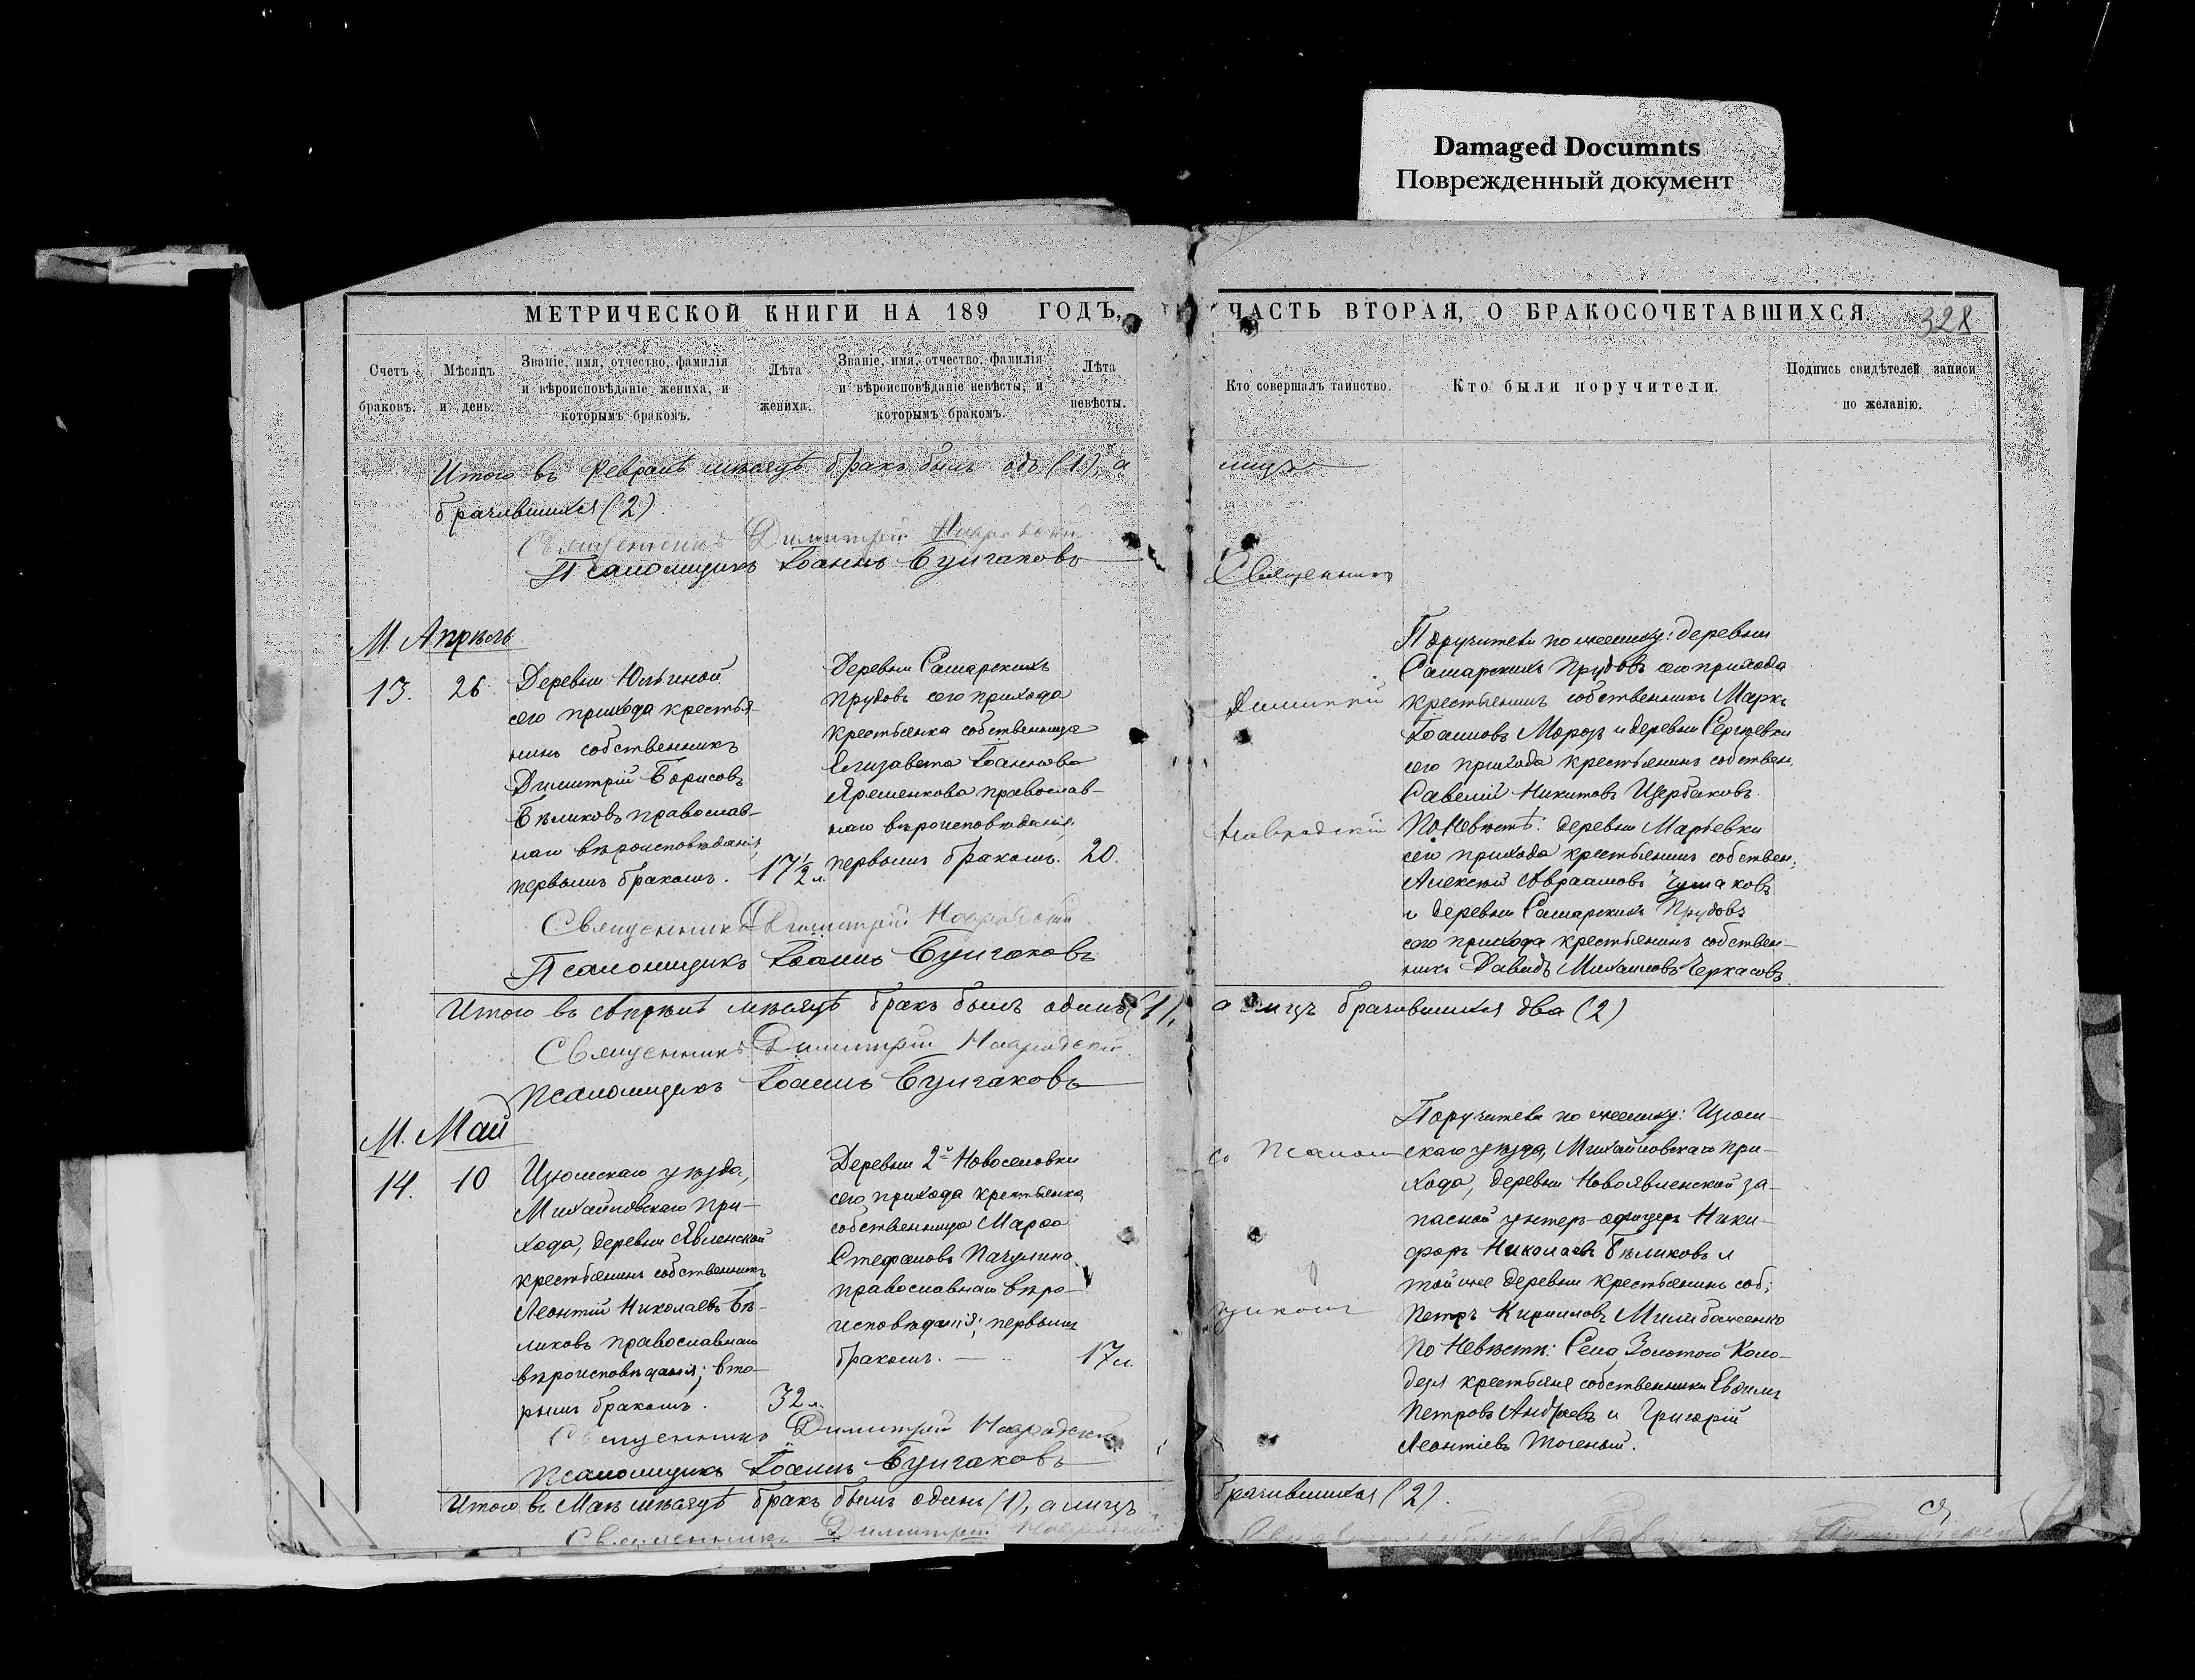 Damaged Documnts
Поврежденный документ
МЕТРИЧЕСКОЙ КНИГИ НА 189 ГОДЪ,
ЧАСТЬ ВТОРАЯ, О БРАКОСОЧЕТАВШИХСЯ.
328
Счетъ браковъ.
Мѣсяцъ и день.
Званіе, имя, отчество, фамилія и вѣроисповѣданіе жениха, и которымъ бракомъ.
Лѣта жениха.
Званіе, имя, отчество, фамилія и вѣроисповѣданіе невѣсты, и которымъ бракомъ.
Лѣта невѣсты.
Кто совершалъ таинство.
Кто были поручители.
Подпись свидѣтелей записи по желанію.
Итого въ Февралѣ мѣсяцѣ бракъ былъ одъ (1), а лицъ
брачившихся (2).
Священникъ Димитрій
Псаломщикъ Іоаннъ Булгаковъ
М. Апрѣль
13.
26.
Деревни Юльиной
сего прихода крестья-
нинъ собственникъ
Димитрій Борисовъ
Бѣликовъ православ-
наго вѣроисповѣданія,
первымъ бракомъ.
17 1/2 л.
Деревни Самарскихъ
Прудовъ сего прихода
крестьянка собственница
Елизавета Іоаннова
Яременкова православ-
наго вѣроисповѣданія
первымъ бракомъ.
20.
Священникъ
Димитрій
Поручители по жениху: деревни
Самарскихъ Прудовъ сего прихода
крестьянинъ собственникъ Маркъ
Іоанновъ Морозъ и деревни Сергѣевки
сего прихода крестьянинъ собствен.
Савелій Никитовъ Щербаковъ.
По Невѣстѣ: деревни Марьевки
сего прихода крестьянинъ собствен.
Алексѣй Авраамовъ Чумаковъ
и деревни Самарскихъ Прудовъ
сего прихода крестьянинъ собствен-
никъ Давидъ Михаиловъ Черкасовъ.
Священникъ Димитрій
Псаломщикъ Іоаннъ Булгаковъ
Итого въ Апрѣлѣ мѣсяцѣ бракъ былъ одинъ (1), а лицъ брачившихся два (2)
Священникъ Димитрій
Псаломщикъ Іоаннъ Булгаковъ
М. Май
14.
10
Изюмскаго уѣзда,
Михайловскаго при-
хода, деревни Явленской
крестьянинъ собственникъ
Леонтій Николаевъ Бѣ-
ликовъ православнаго
вѣроисповѣданія; вто-
рымъ бракомъ.
32 л.
Деревни 2й Новоселовки
сего прихода крестьянка
собственница Марѳа
Стефанова
православнаго вѣро-
исповѣданія; первымъ
бракомъ.
17 л.
съ Псалом
щикомъ
Поручители по жениху: Изюм-
скаго уѣзда, Михайловскаго при-
хода, деревни Новоявленской за-
пасной унтеръ-офицеръ Ники-
форъ Николаевъ Бѣликовъ и
той же деревни крестьянинъ соб.
Петръ Кирилловъ
По Невѣстѣ: Села Золотого Коло-
дезя крестьяне собственники Евфимъ
Петровъ Андреевъ и Григорій
Леонтіевъ Точеный.
Священникъ Димитрій
Псаломщикъ Іоаннъ Булгаковъ
Итого въ Маѣ мѣсяцѣ бракъ былъ одинъ (1), а лицъ брачившихся (2).
Священникъ Димитрій